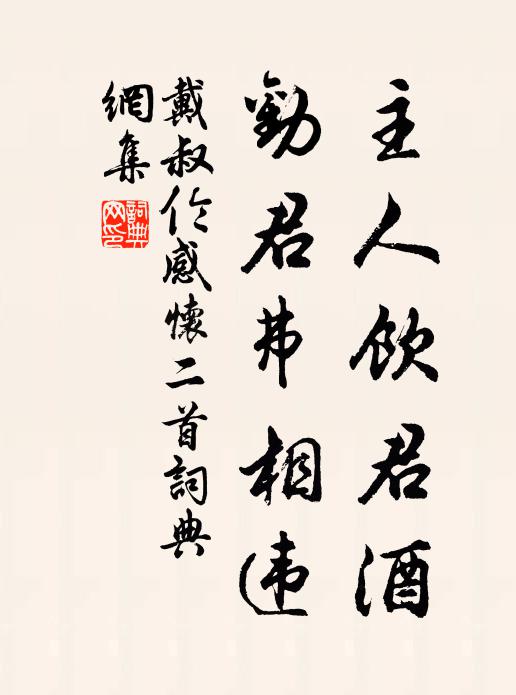 主人饮君酒
勸君弗相违
戴叔伦感懷二首詞典
網集
詞典网印